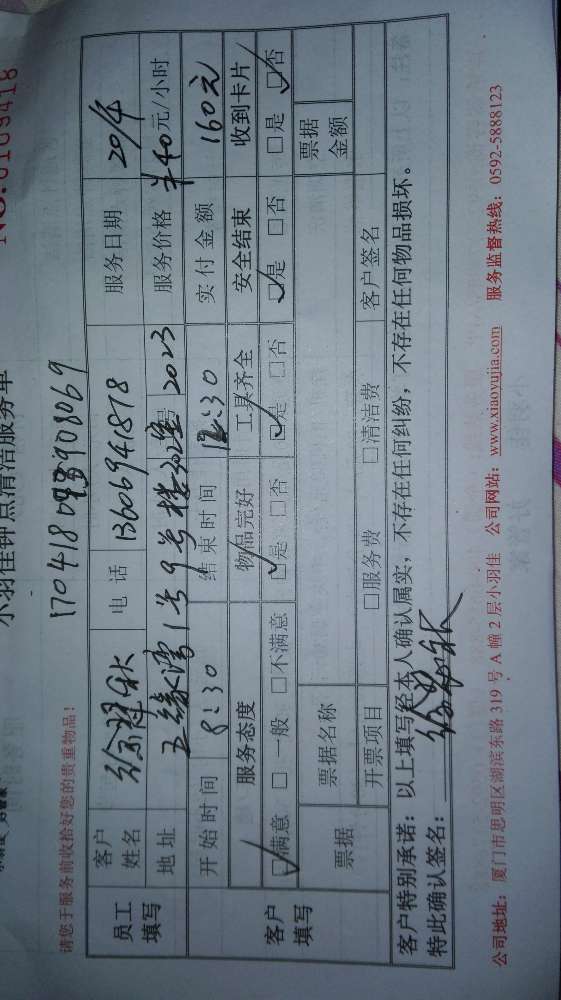 小羽佳钟点清洁服务单
NO.0109418
请您于服务前收拾好您的贵重物品!
员工填写
客户姓名
电话 13606941878
服务日期 20/4
地址 五缘湾1号9号楼 2023
服务价格 ¥40元/小时
客户填写
开始时间 8:30 结束时间 12:30 实付金额 160元
服务态度 物品完好 工具齐全 安全结束 收到卡片
☑满意 □一般 □不满意 ☑是 □否 ☑是 □否 ☑是 □否 □是 ☑否
票据 票据名称 票据金额
开票项目 □服务费 □清洁费 客户签名
客户特别承诺:以上填写经本人确认属实,不存在任何纠纷,不存在任何物品损坏。
特此确认签名:
公司地址:厦门市思明区湖滨东路 319 号 A 幢 2 层小羽佳 公司网站:www.xiaoyujia.com 服务监督热线:0592-5888123